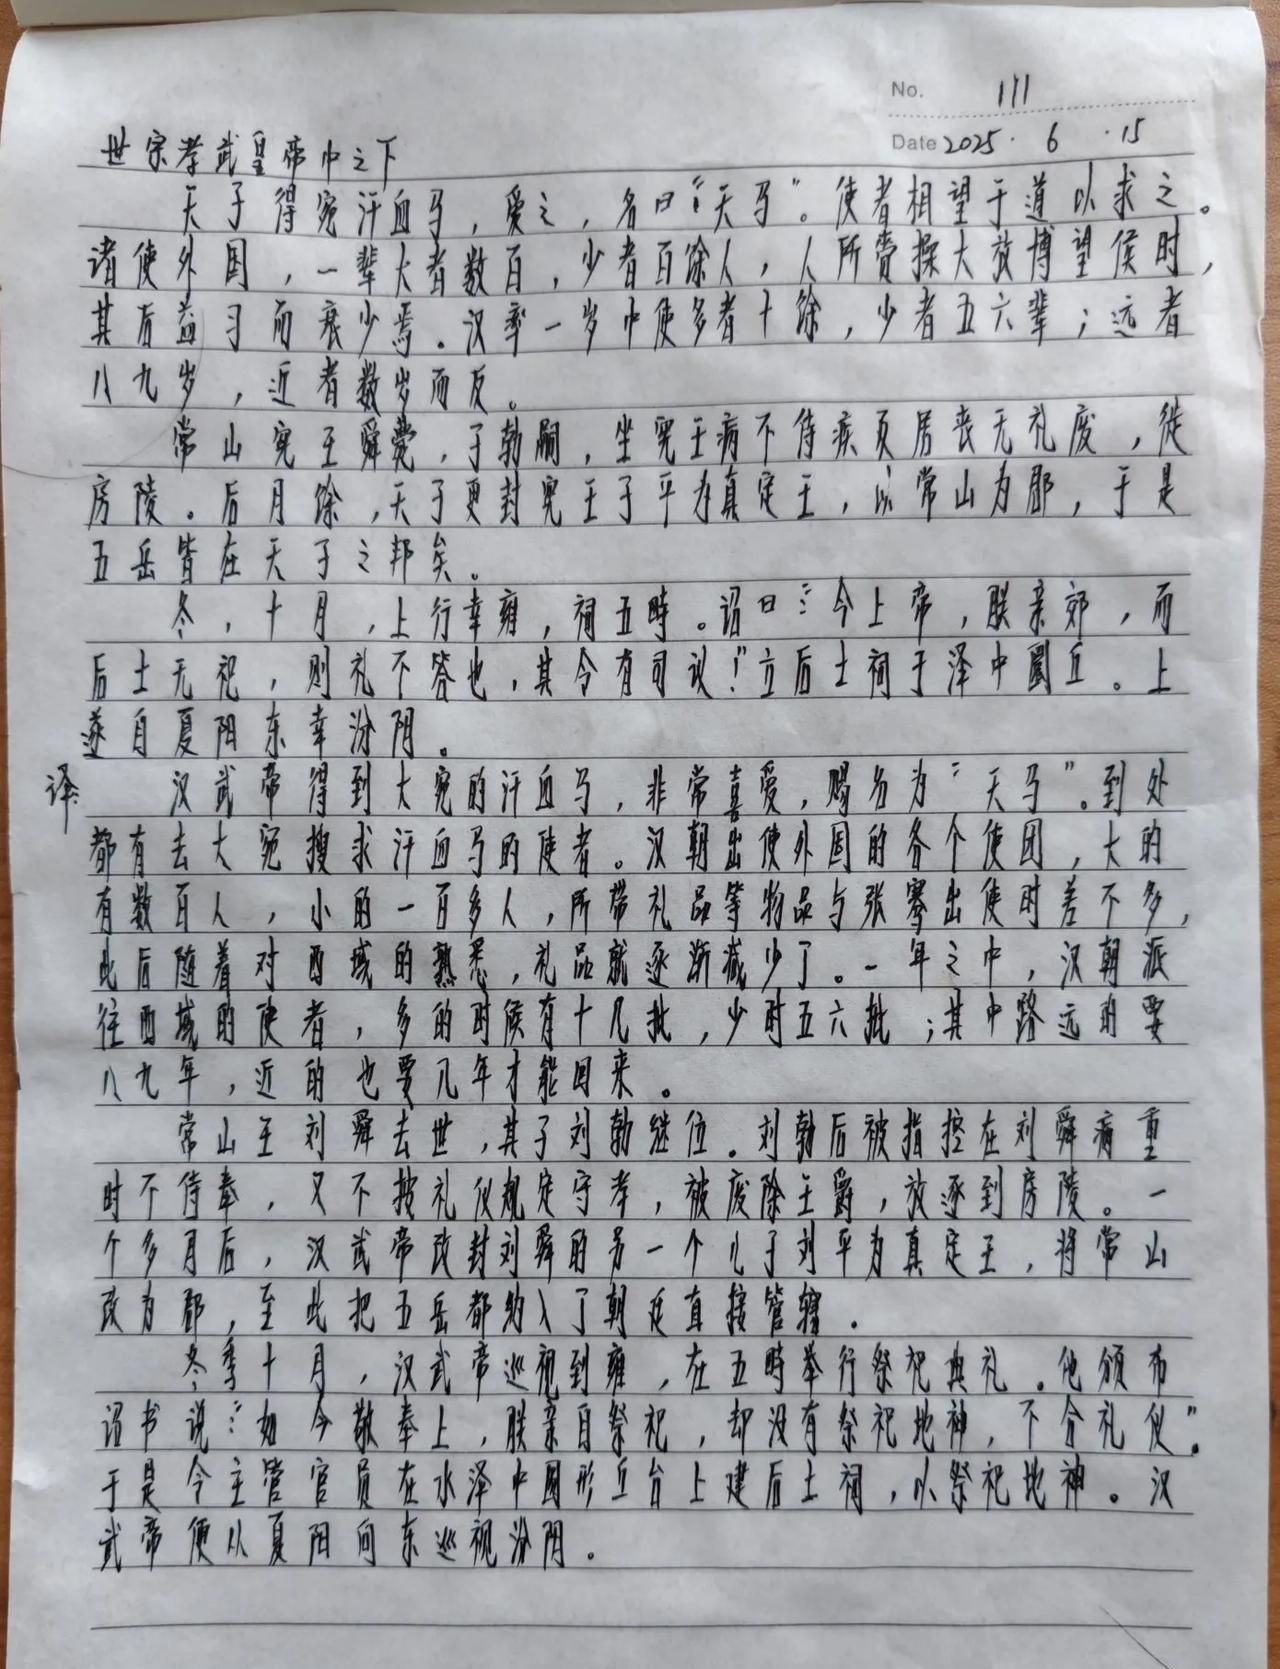 No. 111
Date 2025.6.15
世宗孝武皇帝中之下
天子得宛汗血马，爱之，名曰“天马”。使者相望于道以求之。
诸使外国，一辈大者数百，少者百馀人，人所赍操大放博望侯时，
其后益习而衰少焉。汉率一岁中使多者十馀，少者五六辈；远者
八九岁，近者数岁而反。
常山宪王舜薨，子勃嗣，坐宪王病不侍疾及居丧无礼废，徙
房陵。后月馀，天子更封宪王子平为真定王，以常山为郡，于是
五岳皆在天子之邦矣。
冬，十月，上行幸雍，祠五畤。诏曰：“今上帝，朕亲郊，而
后土无祀，则礼不答也，其令有司议！”立后土祠于泽中圜丘。上
遂自夏阳东幸汾阴。
译：汉武帝得到大宛的汗血马，非常喜爱，赐名为“天马”。到处
都有去大宛搜求汗血马的使者。汉朝出使外国的各个使团，大的
有数百人，小的一百多人，所带礼品等物品与张骞出使时差不多，
此后随着对西域的熟悉，礼品就逐渐减少了。一年之中，汉朝派
往西域的使者，多的时候有十几批，少时五六批；其中路远的要
八九年，近的也要几年才能回来。
常山王刘舜去世，其子刘勃继位。刘勃后被指控在刘舜病重
时不侍奉，又不按礼仪规定守孝，被废除王爵，放逐到房陵。一
个多月后，汉武帝改封刘舜的另一个儿子刘平为真定王，将常山
改为郡，至此把五岳都纳入了朝廷直接管辖。
冬季十月，汉武帝巡视到雍，在五畤举行祭祀典礼。他颁布
诏书说：“如今敬奉上，朕亲自祭祀，却没有祭祀地神，不合礼仪”。
于是令主管官员在水泽中圆形丘台上建后土祠，以祭祀地神。汉
武帝便从夏阳向东巡视汾阴。